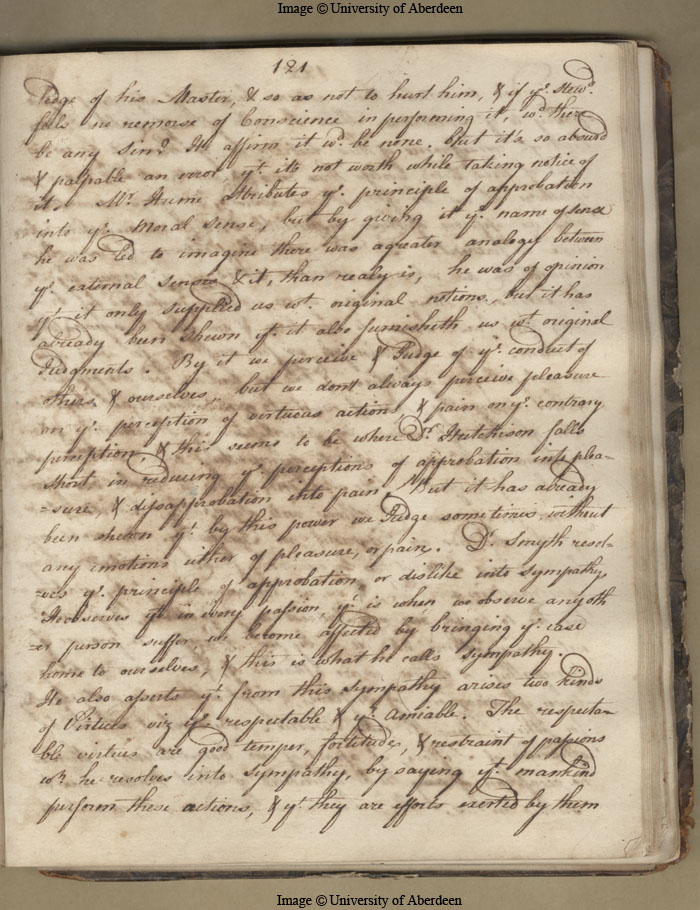 Image © University of Aberdeen
121
ledge of his Master, & so as not to hurt him, & if yᵉ. Stewᵈ.
feels no remorse of Conscience in performing it, wᵈ. there
be any sin? He affirm it wᵈ. be none. But it's so absurd
& palpable an error yᵗ. it's not worth while taking notice of
it. Mʳ. Hume attributes yᵉ. principle of approbation
into yᵉ. moral sense, but by giving it yᵉ. name of sense
he was led to imagine there was a greater analogy between
yᵉ. external senses & it, than realy is, he was of opinion
yᵗ. it only supplied us wᵗ. original notions, but it has
already been shewn yᵗ. it also furnisheth us wᵗ. original
Judgments. By it we perceive & Judge of yᵉ. conduct of
others & ourselves, but we dont always perceive pleasure
on yᵉ. perception of virtuous actions, & pain on yᵉ. contrary
perception. & this seems to be where Dʳ. Hutchison falls
short in reducing yᵉ. perceptions of approbation into plea-
-sure, & disapprobation into pain. But it has already
been shewn yᵗ. by this power we Judge sometimes without
any emotions either of pleasure, or pain. Dʳ. Smyth resol-
-ves yᵉ. principle of approbation or dislike into sympathy.
He observes yᵗ. in every passion, yᵗ. is when we observe anyoth
-er person suffer we become affected by bringing yᵉ. case
home to ourselves, & this is what he calls sympathy.
He also asserts yᵗ. from this sympathy arises two kinds
of Virtues viz yᵉ. respectable & yᵉ. amiable. The respecta-
ble virtues are good temper, fortitude, & restraint of passions
wᶜʰ. he resolves into sympathy, by saying yᵗ. mankind
perform these actions, & yᵗ. they are efforts exerted by them
Image © University of Aberdeen